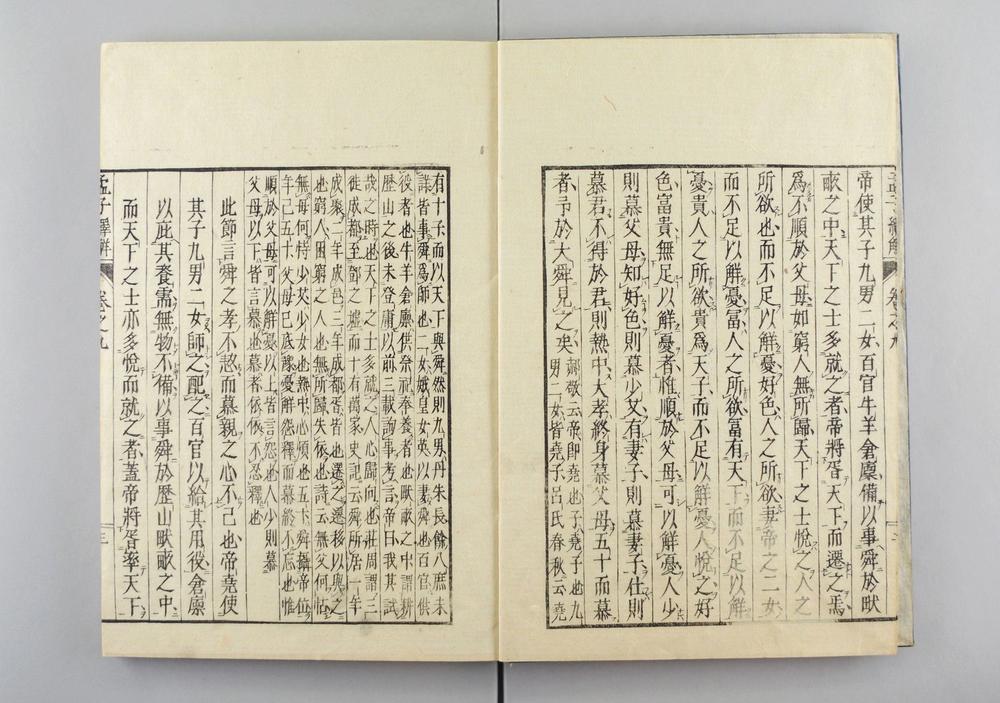 帝使其子九男二女百官牛羊倉廩備以事舜於畎
畝之中天下之士多就之者帝將胥天下而遷之焉
爲不順於父母如窮人無所歸天下之士悅之人之
所欲也而不足以解憂好色人之所欲妻帝之二女
而不足以解憂富人之所欲富有天下而不足以解
憂貴人之所欲貴爲天子而不足以解憂人悅之好
色富貴無足以解憂者惟順於父母可以解憂人少
則慕父母知好色則慕少艾有妻子則慕妻子仕則
慕君不得於君則熱中大孝終身慕父母五十而慕
者予於大舜見之矣
郝敬云帝即堯也子堯子也九
男二女皆堯子呂氏春秋云堯
有十子而以天下與舜然則九男丹朱長餘八庶未
詳皆事舜爲師也二女娥皇女英以妻舜也百官供
役者也牛羊倉廩供祭祀奉養者也畎畝之中謂耕
歷山之後未登庸以前三載詢事考言帝曰我其試
哉之時也天下之士多就之人心歸向也莊周謂三
徙成都至鄧之墟而十有萬家史記云舜所居一年
成聚二年成邑三年成都胥皆也遷之遷移以與之
也窮人困窮之人也無所歸失依也詩云無父何怙
無母何恃少艾少女也熱中心煩也五十舜攝帝位
年已五十父母已底豫憂解怨釋而慕終不忘也惟
順於父母可以解憂以上皆言怨也人少則慕
父母以下皆言慕也慕者依依不忍釋也
此節言舜之孝不懟而慕親之心不已也帝堯使
其子九男二女師之配之百官以給其用役倉廩
以庇其養需無物不備以事舜於歷山畎畝之中
而天下之士亦多悅而就之者蓋帝將胥率天下
孟子繹解
卷之九
三